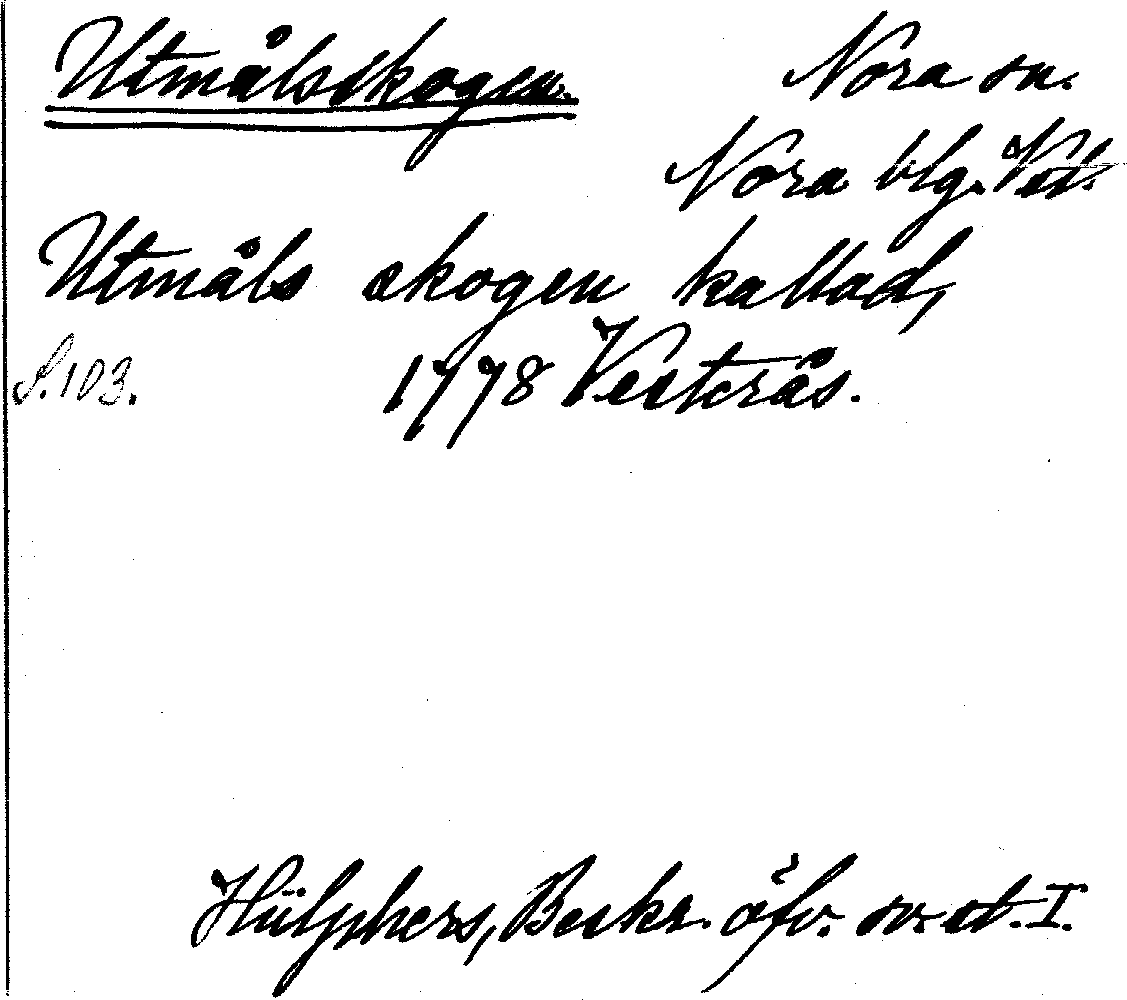 Utmålsskogen.
Nora sn.
Nora blg. Vstl.
Utmåls skogen kallad,
S. 103. 1778 Vesterås.
Hülphers, Beskr. öfv. sv. st. I.